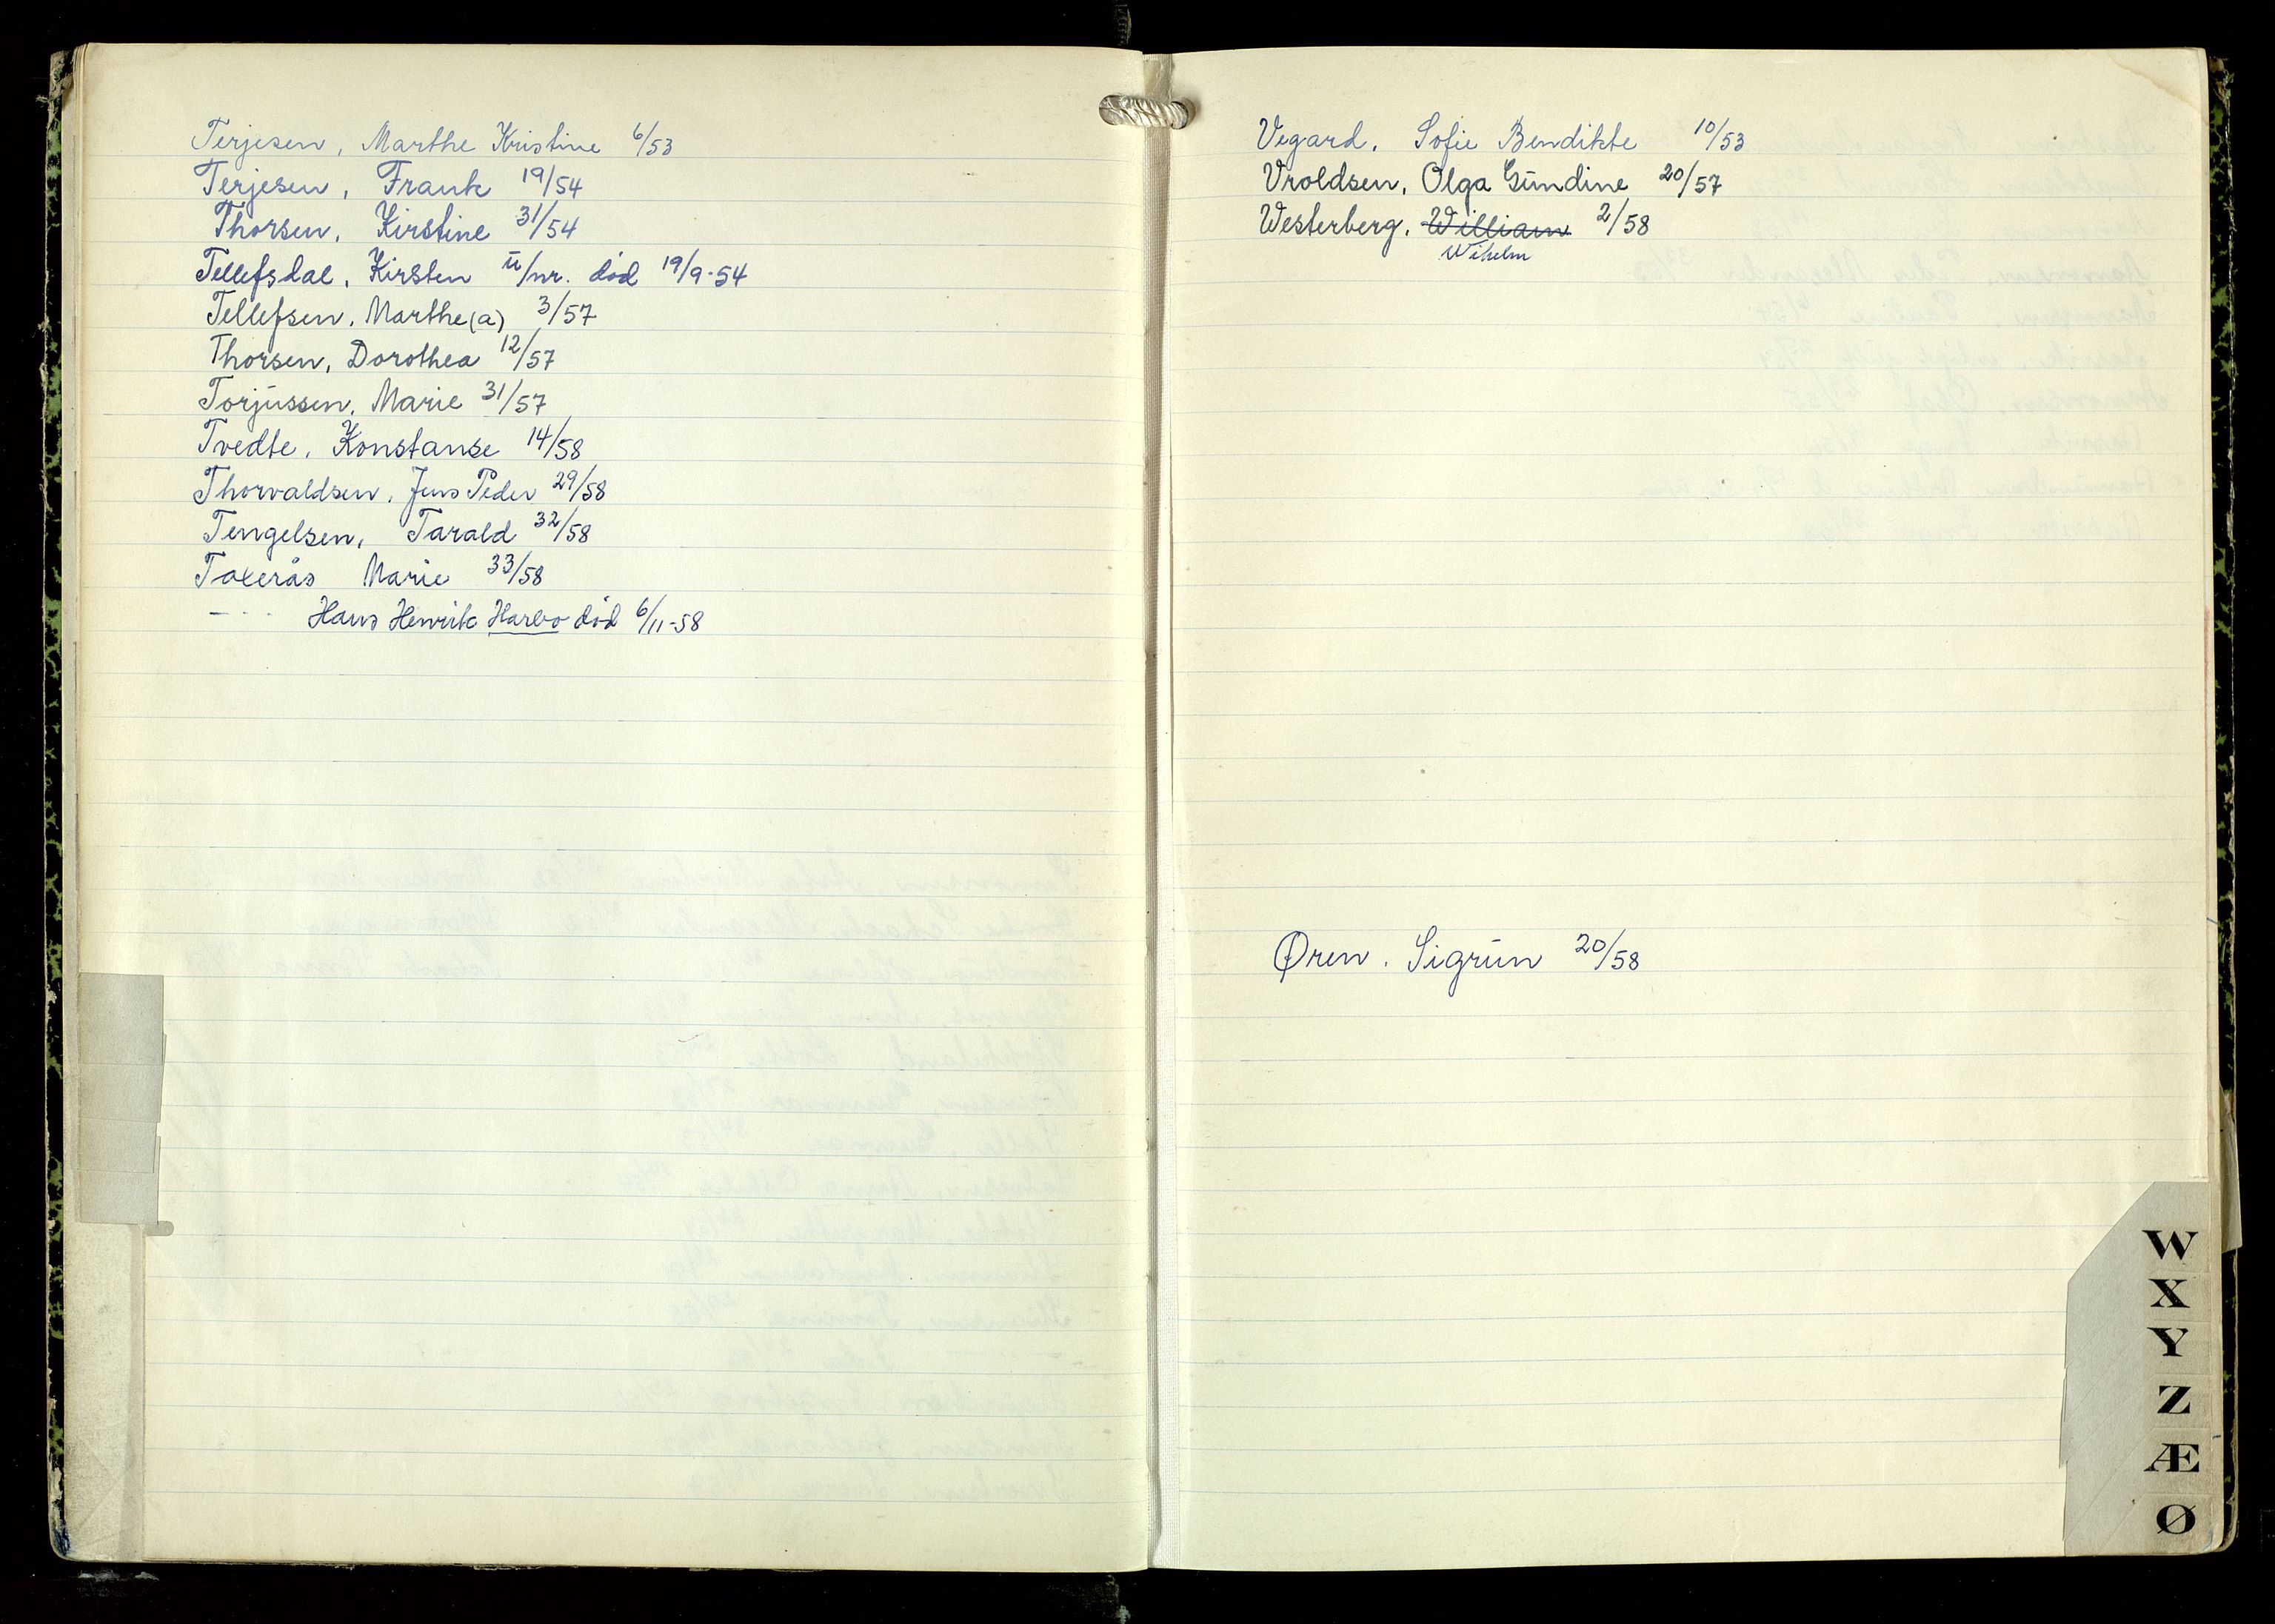 Terjesen, Marthe Kristine 6/53
Terjesen, Frank 19/54
Thorsen, Kirstine 31/54
Tellefsdal, Kirsten u/nr. död 19/9-54
Tellefsen, Marthe(a) 3/57
Thorsen, Dorothea 12/57
Torjussen, Marie 31/57
Tvedte, Konstanse 14/58
Thorvaldsen, Jens Peder 29/58
Tengelsen, Tarald 32/58
Taxerås Marie 33/58
- - - Hans Henrik Harbo död 6/11-58
Vegard, Sofie Bendikte 10/53
Vroldsen, Olga Gundine 20/57
Westerberg, William 2/58
Wihelm
Øren. Sigrun 20/58
W
X
Y
Z
Æ
Ø